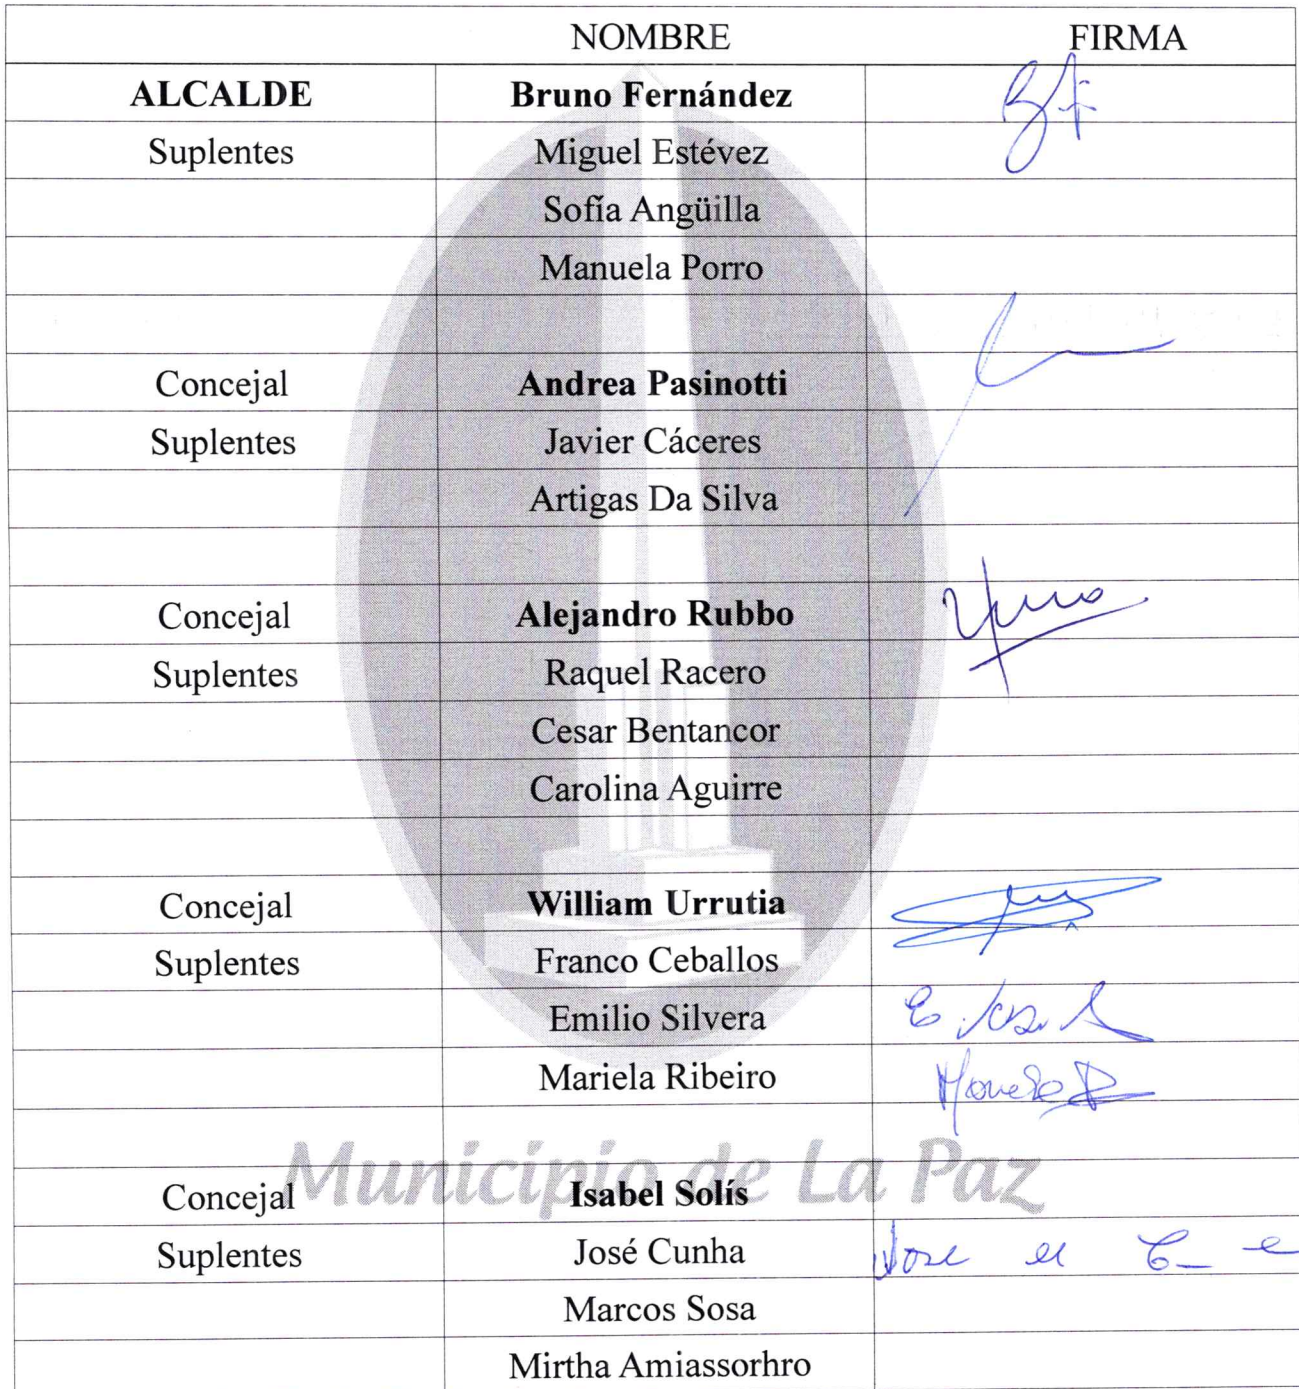 NOMBRE FIRMA
ALCALDE Bruno Fernández
Suplentes Miguel Estévez
Sofía Angüilla
Manuela Porro
Concejal Andrea Pasinotti
Suplentes Javier Cáceres
Artigas Da Silva
Concejal Alejandro Rubbo
Suplentes Raquel Racero
Cesar Bentancor
Carolina Aguirre
Concejal William Urrutia
Suplentes Franco Ceballos
Emilio Silvera
Mariela Ribeiro
Municipio de La Paz
Concejal Isabel Solís
Suplentes José Cunha Jose
Marcos Sosa
Mirtha Amiassorhro